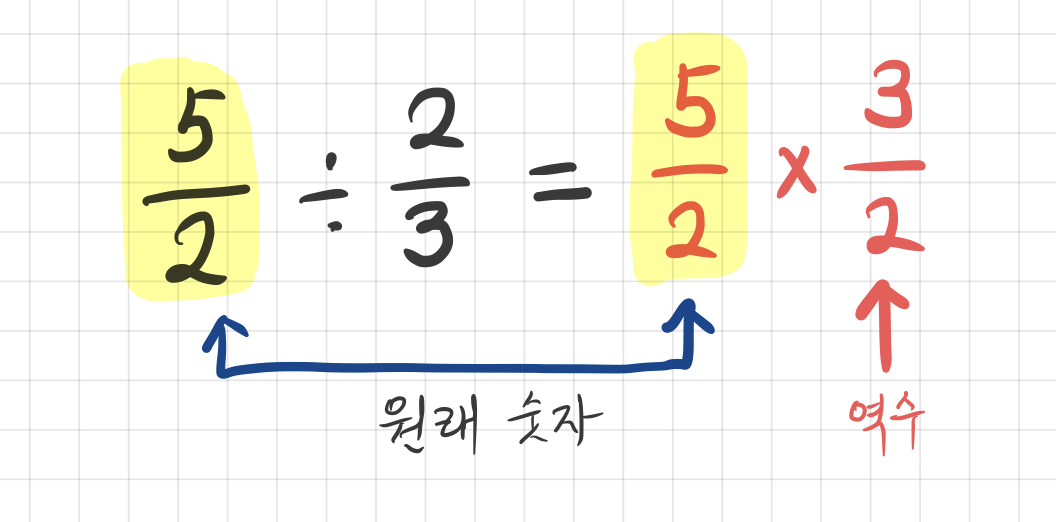 5/2 ÷ 2/3 = 5/2 × 3/2
원래 숫자
역수